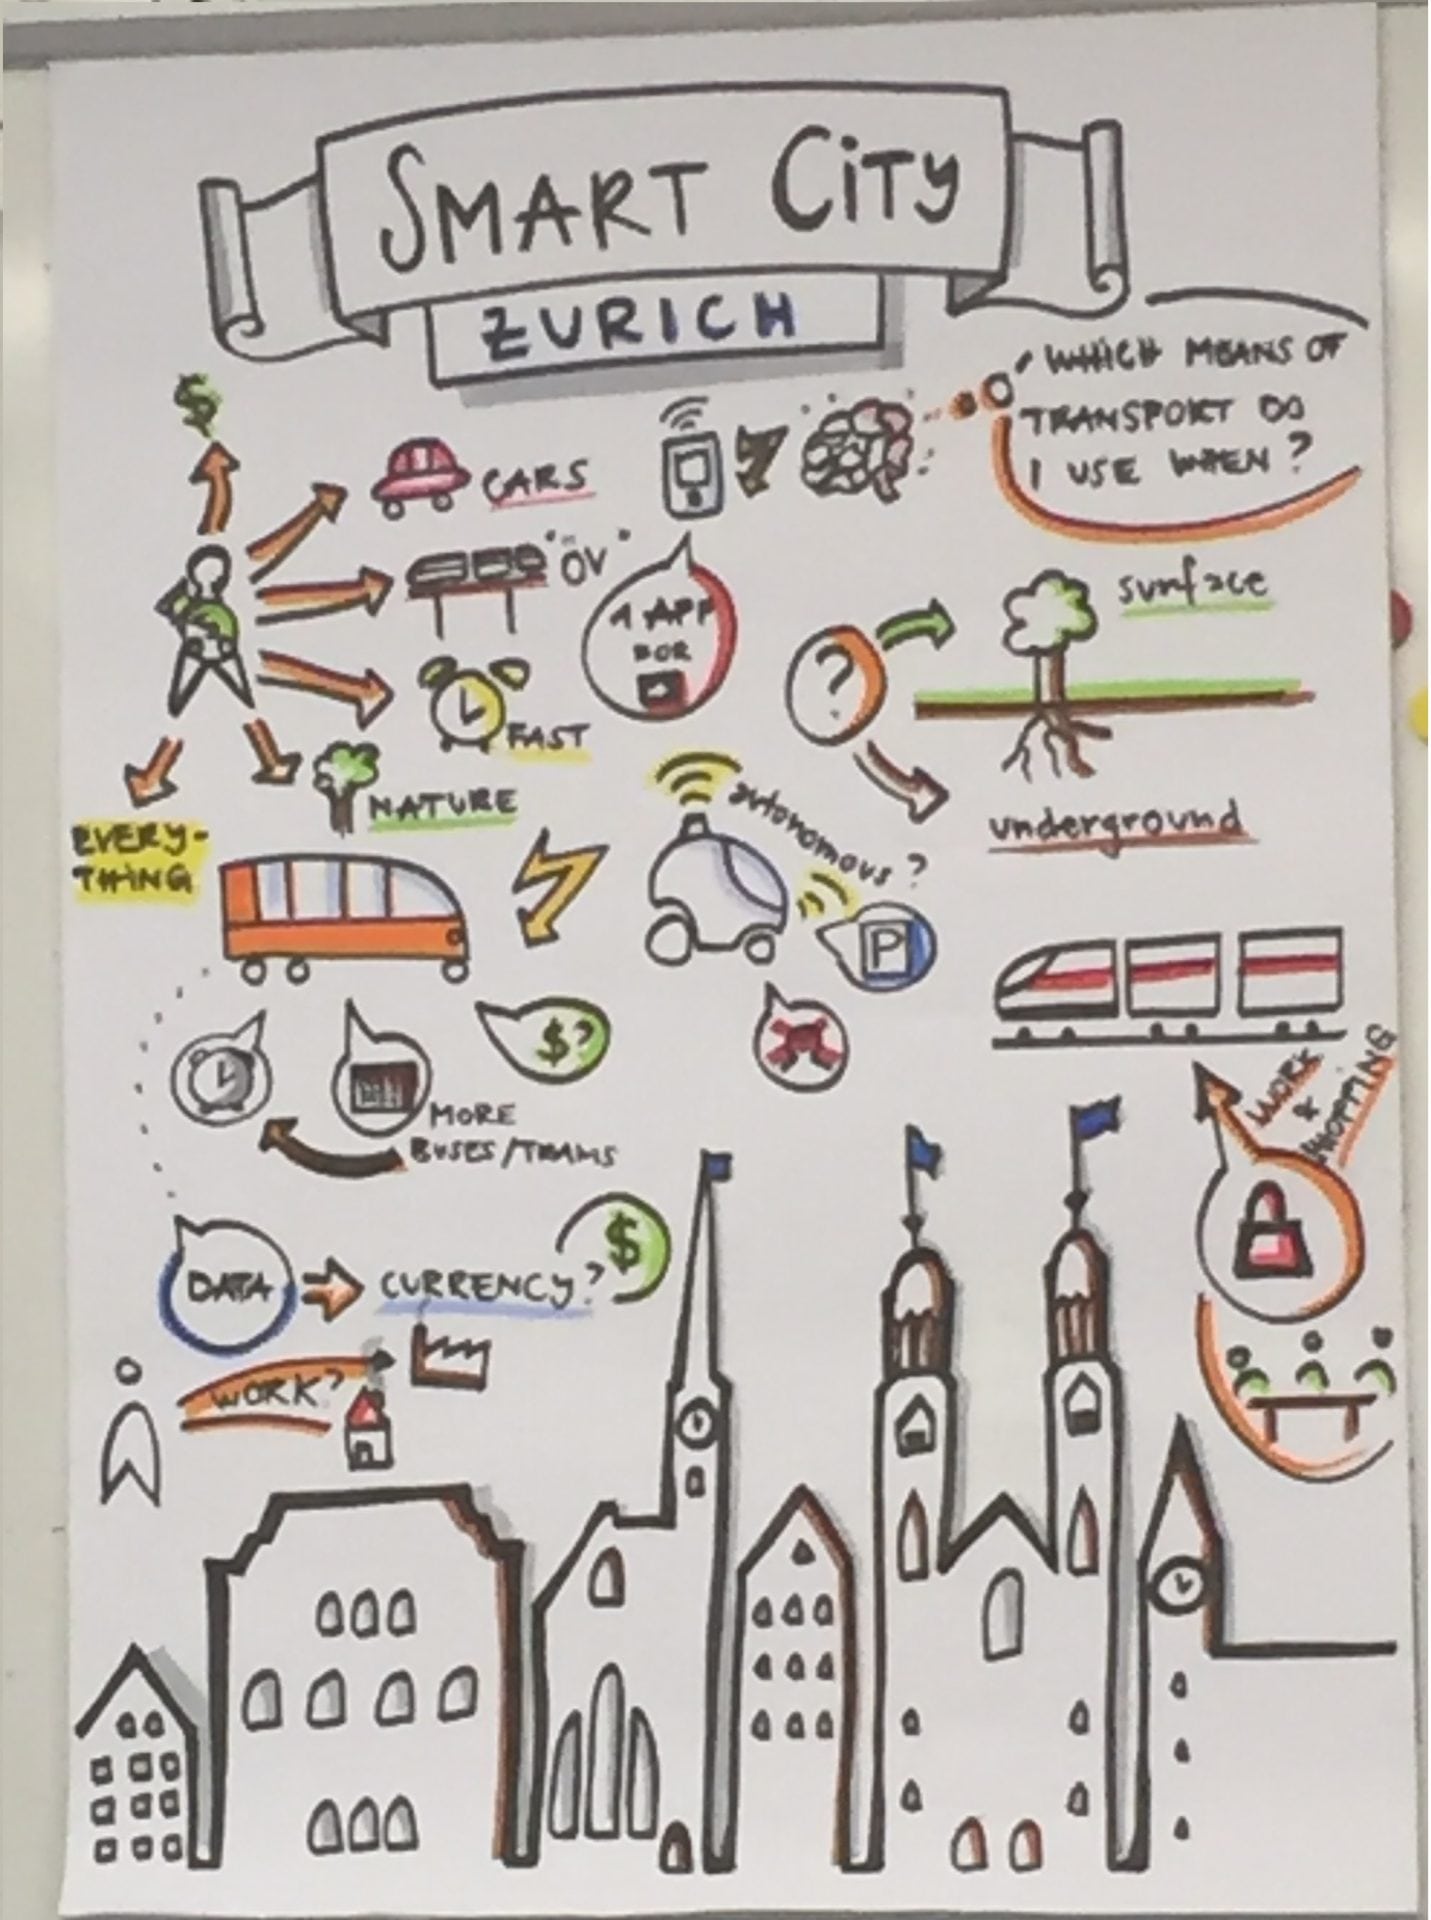 SMART CiTy
ZURICH
$
WHICH MEANS OF
TRANSPORT DO
I USE WHEN?
CARS
"ÖV"
1 APP
FOR
surface
?
FAST
NATURE
underground
EVERY-
THING
autonomous?
P
$?
MORE
BUSES/TRAMS
WORK
&
SHOPPING
DATA
CURRENCY?
$
WORK?